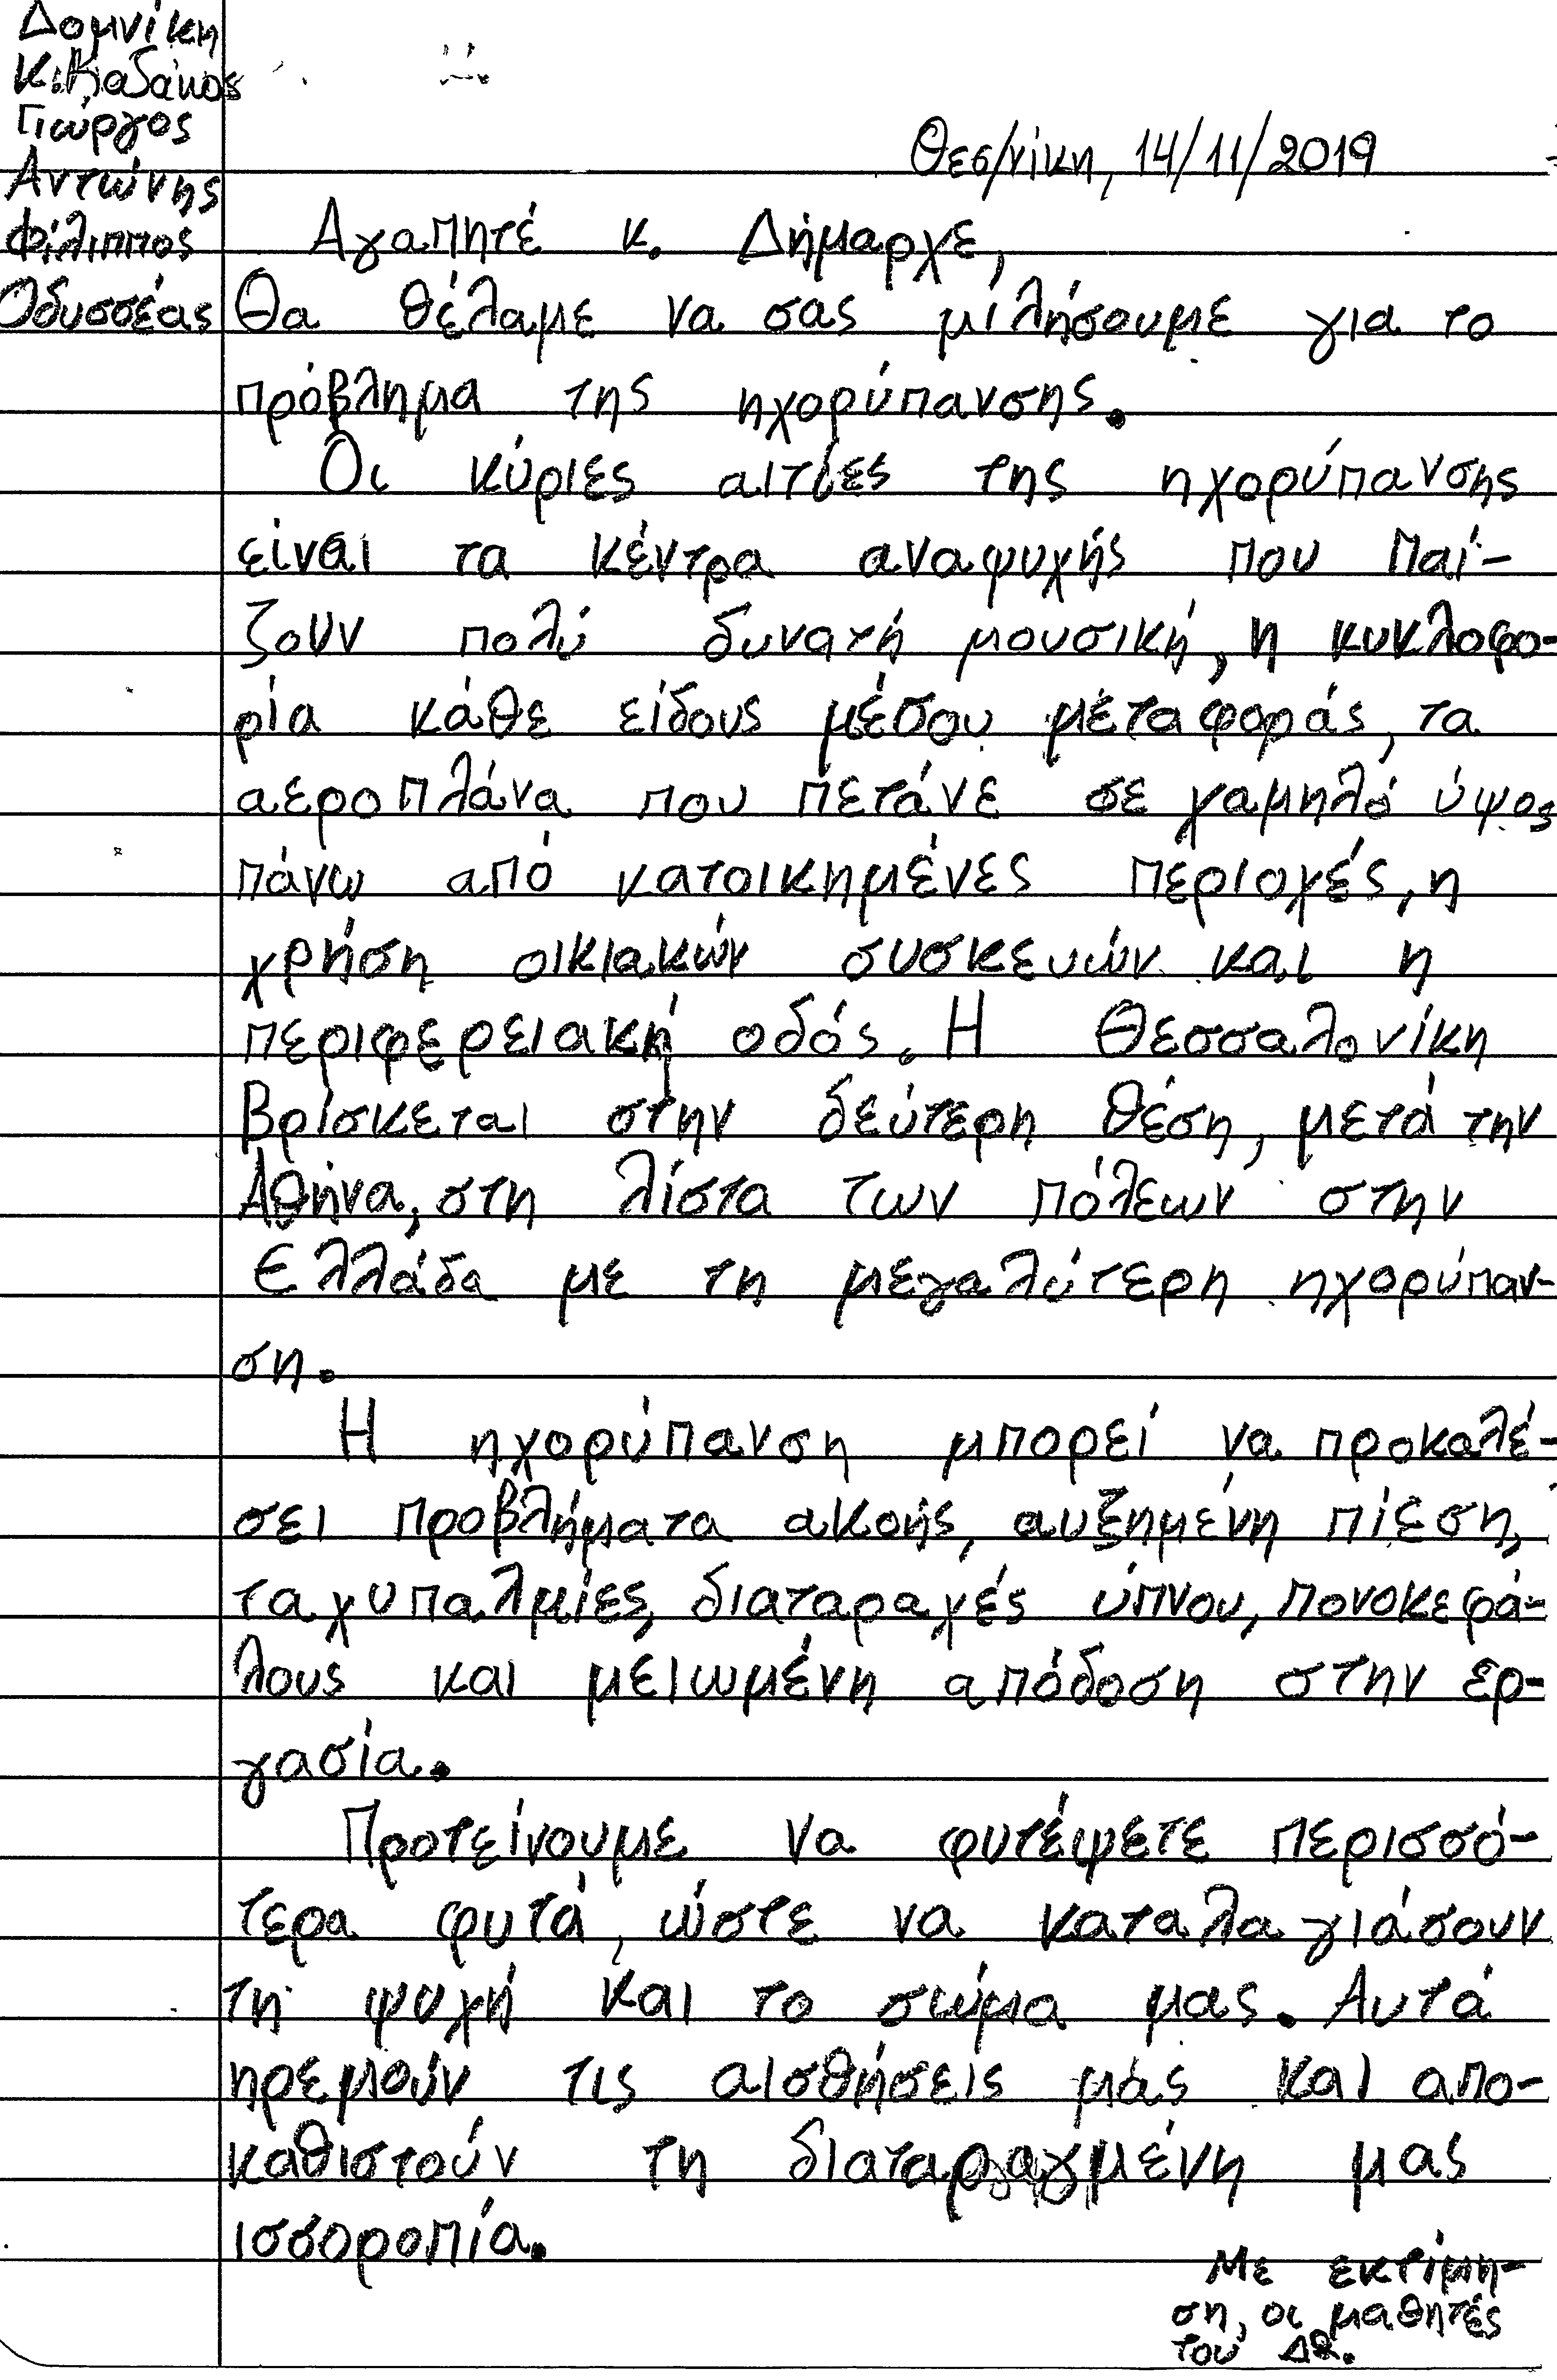 Δομνίκη
Κ. Καδάκος
Γιώργος
Αντώνης
Φίλιππος
Οδυσσέας
Θεσ/νίκη, 14/11/2019
Αγαπητέ κ. Δήμαρχε,
Θα θέλαμε να σας μιλήσουμε για το
πρόβλημα της ηχορύπανσης.
Οι κύριες αιτίες της ηχορύπανσης
είναι τα κέντρα αναψυχής που παί-
ζουν πολύ δυνατή μουσική, η κυκλοφο-
ρία κάθε είδους μέσου μεταφοράς, τα
αεροπλάνα που πετάνε σε χαμηλό ύψος
πάνω από κατοικημένες περιοχές, η
χρήση οικιακών συσκευών και η
περιφερειακή οδός. Η Θεσσαλονίκη
βρίσκεται στην δεύτερη θέση, μετά την
Αθήνα, στη λίστα των πόλεων στην
Ελλάδα με τη μεγαλύτερη ηχορύπαν-
ση.
Η ηχορύπανση μπορεί να προκαλέ-
σει προβλήματα ακοής, αυξημένη πίεση,
ταχυπαλμίες, διαταραχές ύπνου, πονοκεφά-
λους και μειωμένη απόδοση στην ερ-
γασία.
Προτείνουμε να φυτέψετε περισσό-
τερα φυτά, ώστε να καταλαγιάσουν
τη ψυχή και το σώμα μας. Αυτά
ηρεμούν τις αισθήσεις μας και απο-
καθιστούν τη διαταραγμένη μας
ισσοροπία.
Με εκτίμη-
ση, οι μαθητές
του Δ2.